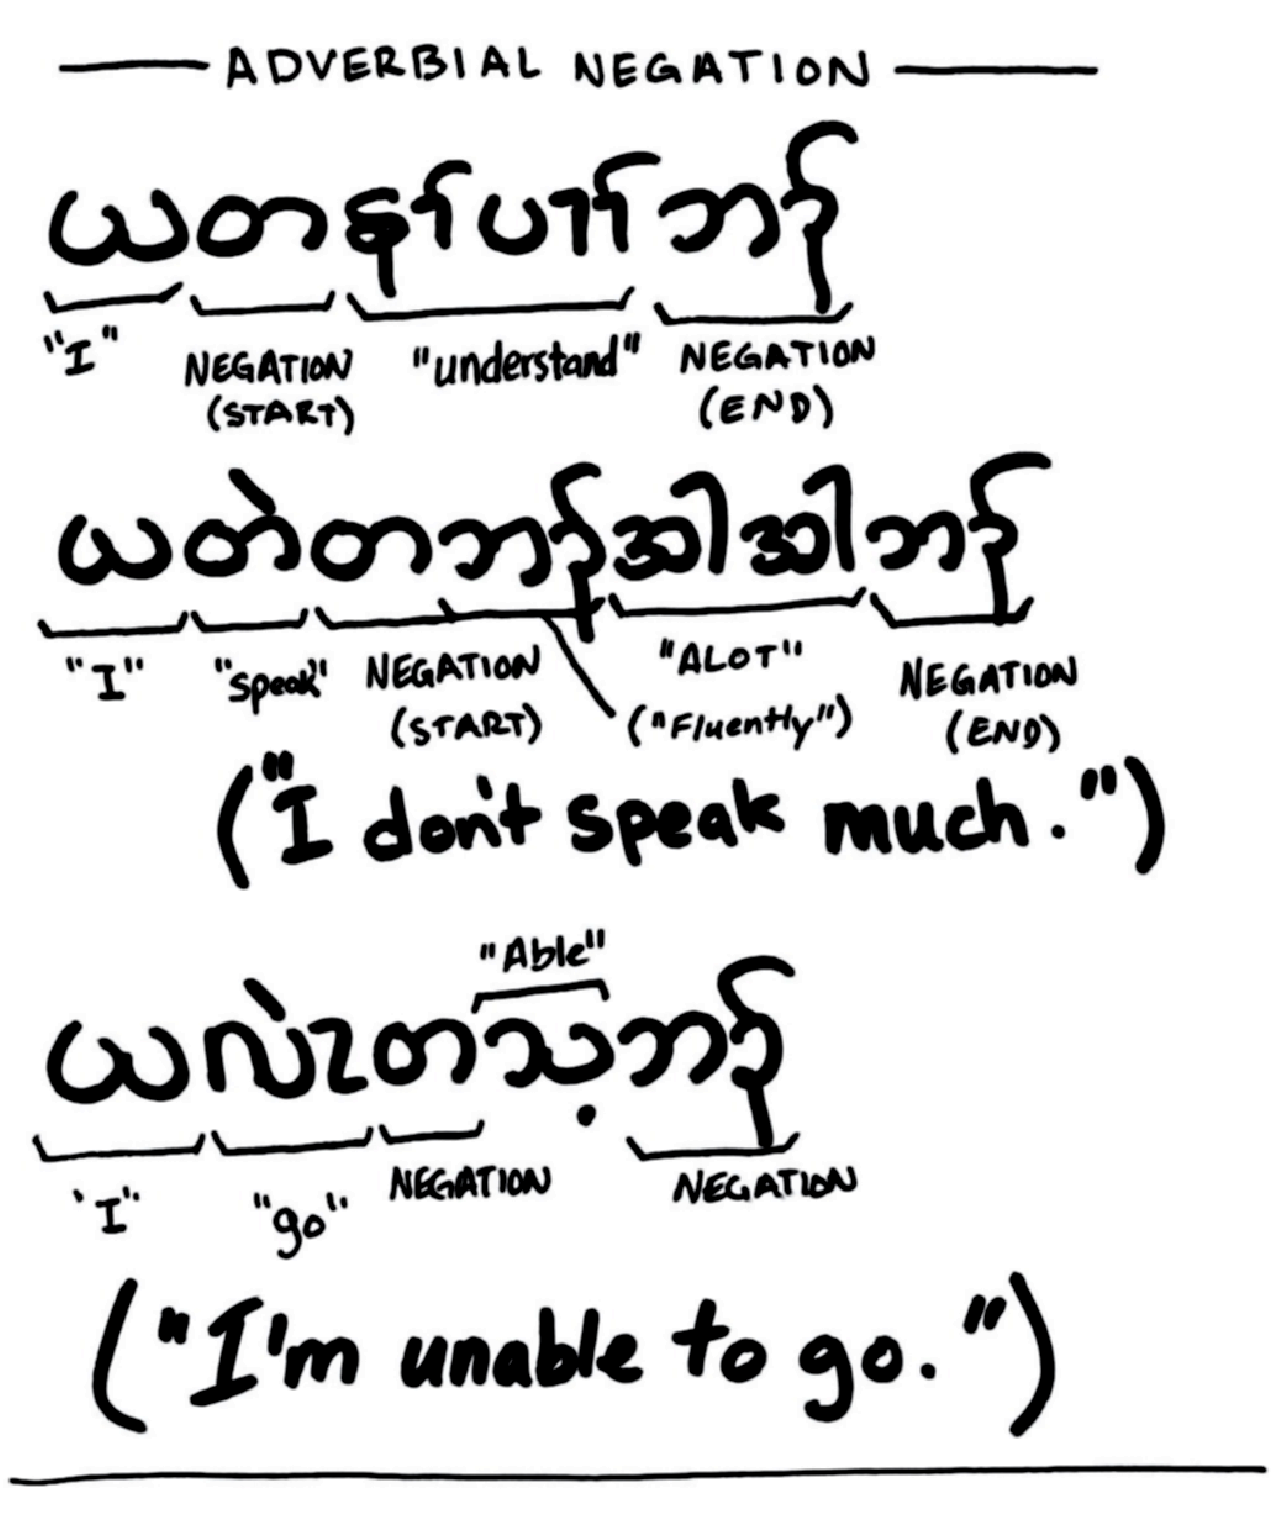 ADVERBIAL NEGATION
ယတနၢ်ပၢၢ်ဘၣ်
"I" NEGATION (START) "understand" NEGATION (END)
ယတဲတဘၣ်အါအါဘၣ်
"I" "speak" NEGATION (START) "ALOT" NEGATION (END)
("Fluently")
("I don't speak much.")
"Able"
ယလဲၤတသ့ဘၣ်
'I" "go" NEGATION NEGATION
("I'm unable to go.")